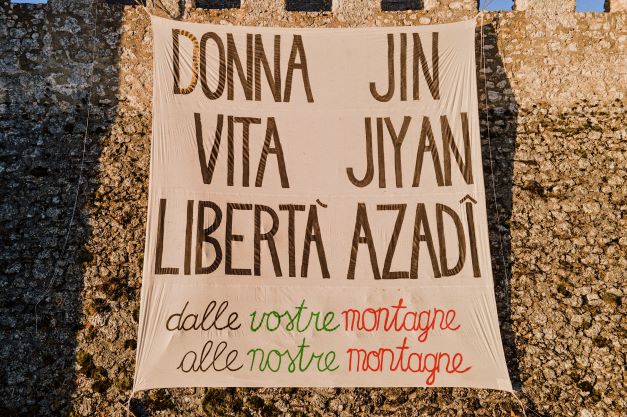 DONNA JIN
VITA JIYAN
LIBERTÀ AZADÎ
dalle vostre montagne
alle nostre montagne